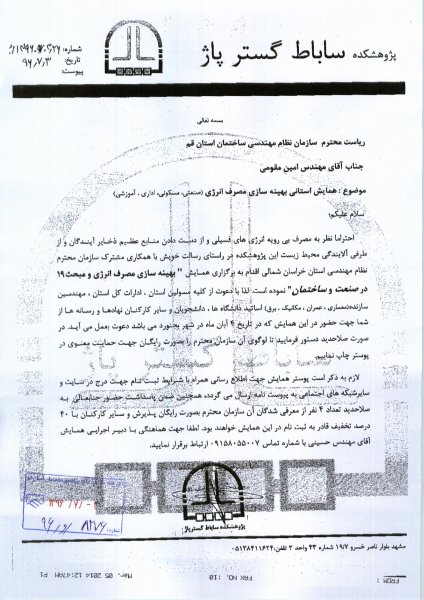 پژوهشکده ساباط گستر پاژ
شماره:
تاریخ: ۹۶٫۷٫۳
پیوست:
بسمه تعالی
ریاست محترم سازمان نظام مهندسی ساختمان استان قم
جناب آقای مهندس امین مقومی
موضوع : همایش استانی بهینه سازی مصرف انرژی (صنعتی، مسکونی، اداری ، آموزشی)
سلام علیکم؛
احتراما نظر به مصرف بی رویه انرژی های فسیلی و از دست دادن منابع عظیم ذخایر آیندگان و از
طرفی آلایندگی محیط زیست این پژوهشکده در راستای رسالت خویش با همکاری مشترک سازمان محترم
نظام مهندسی استان خراسان شمالی اقدام به برگزاری همایش " بهینه سازی مصرف انرژی و مبحث ۱۹
در صنعت و ساختمان" نموده است. لذا با دعوت از کلیه مسولین استان ، ادارات کل استان ، مهندسین
سازنده(معماری ، عمران ، مکانیک ، برق) اساتید دانشگاه ها ، دانشجویان و سایر کارکنان نهادها و رسانه ها از
شما جهت حضور در این همایش که در تاریخ ۴ آبان ماه در شهر بجنورد می باشد دعوت بعمل می آید. در
صورت صلاحدید دستور فرمایید تا لوگوی آن سازمان محترم را بصورت رایگان جهت حمایت معنوی در
پوستر چاپ نماییم.
لازم به ذکر است پوستر همایش جهت اطلاع رسانی همراه با شرایط ثبت نام جهت درج در سایت و
سایرشبکه های اجتماعی به پیوست نامه ارسال می گردد، همچنین ضمن پاسداشت حضور جنابعالی به
صلاحدید تعداد ۴ نفر از معرفی شدگان آن سازمان محترم بصورت رایگان پذیرش و سایر کارکنان با ۴۰
درصد تخفیف قادر به ثبت نام در این همایش خواهند بود. لطفا جهت هماهنگی با دبیر اجرایی همایش
آقای مهندس حسینی با شماره تماس ۰۹۱۵۸۰۵۵۰۰۷ ارتباط برقرار نمایید.
پژوهشکده ساباط گستر پاژ
مشهد بلوار ناصر خسرو ۱۹/۷ شماره ۲۳ واحد ۲ تلفن:۰۵۱۳۸۴۱۱۶۲۴
FROM : FAX NO. :10 Mar. 05 2014 12:47AM P1